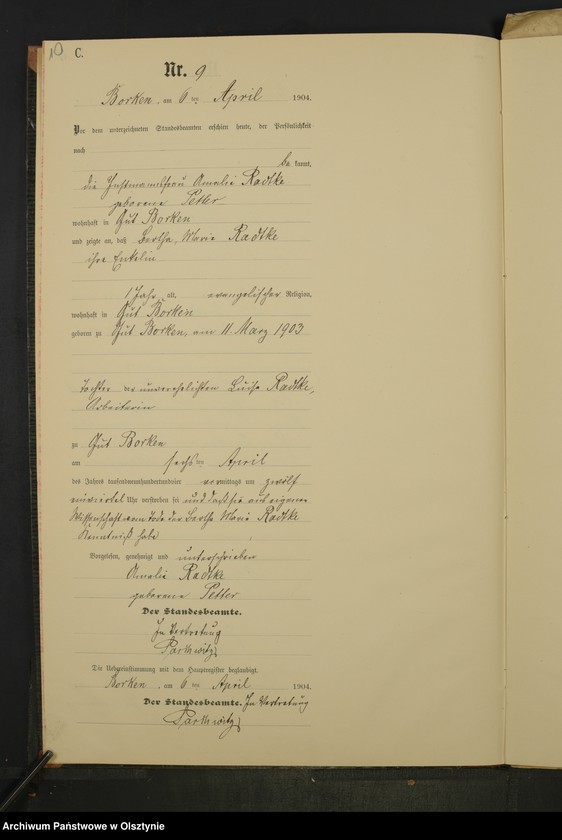 10
C.
Nr. 9
Borken, am 6ten April 1904.
Vor dem unterzeichneten Standesbeamten erschien heute, der Persönlichkeit
nach
be kannt,
die Instmannsfrau Amalie Radtke
geborene Petter
wohnhaft in Gut Borken
und zeigte an, daß Bertha, Marie Radtke
ihre Enkelin
1 Jahr alt, evangelischer Religion,
wohnhaft in Gut Borken
geboren zu Gut Borken, am 11 März 1903
Tochter der unverehelichten Luise Radtke,
Arbeiterin
zu Gut Borken
am sechsten April
des Jahres tausendneunhundertundvier vormittags um zwölf
einviertel Uhr verstorben sei und daß sie aus eigener
Wissenschaft vom Tode der Bertha Marie Radtke
Kenntniß habe
Vorgelesen, genehmigt und unterschrieben
Amalie Radtke
geborene Petter
Der Standesbeamte.
In Vertretung
Die Uebereinstimmung mit dem Hauptregister beglaubigt.
Borken, am 6ten April 1904.
Der Standesbeamte. In Vertretung
Archiwum Państwowe w Olsztynie